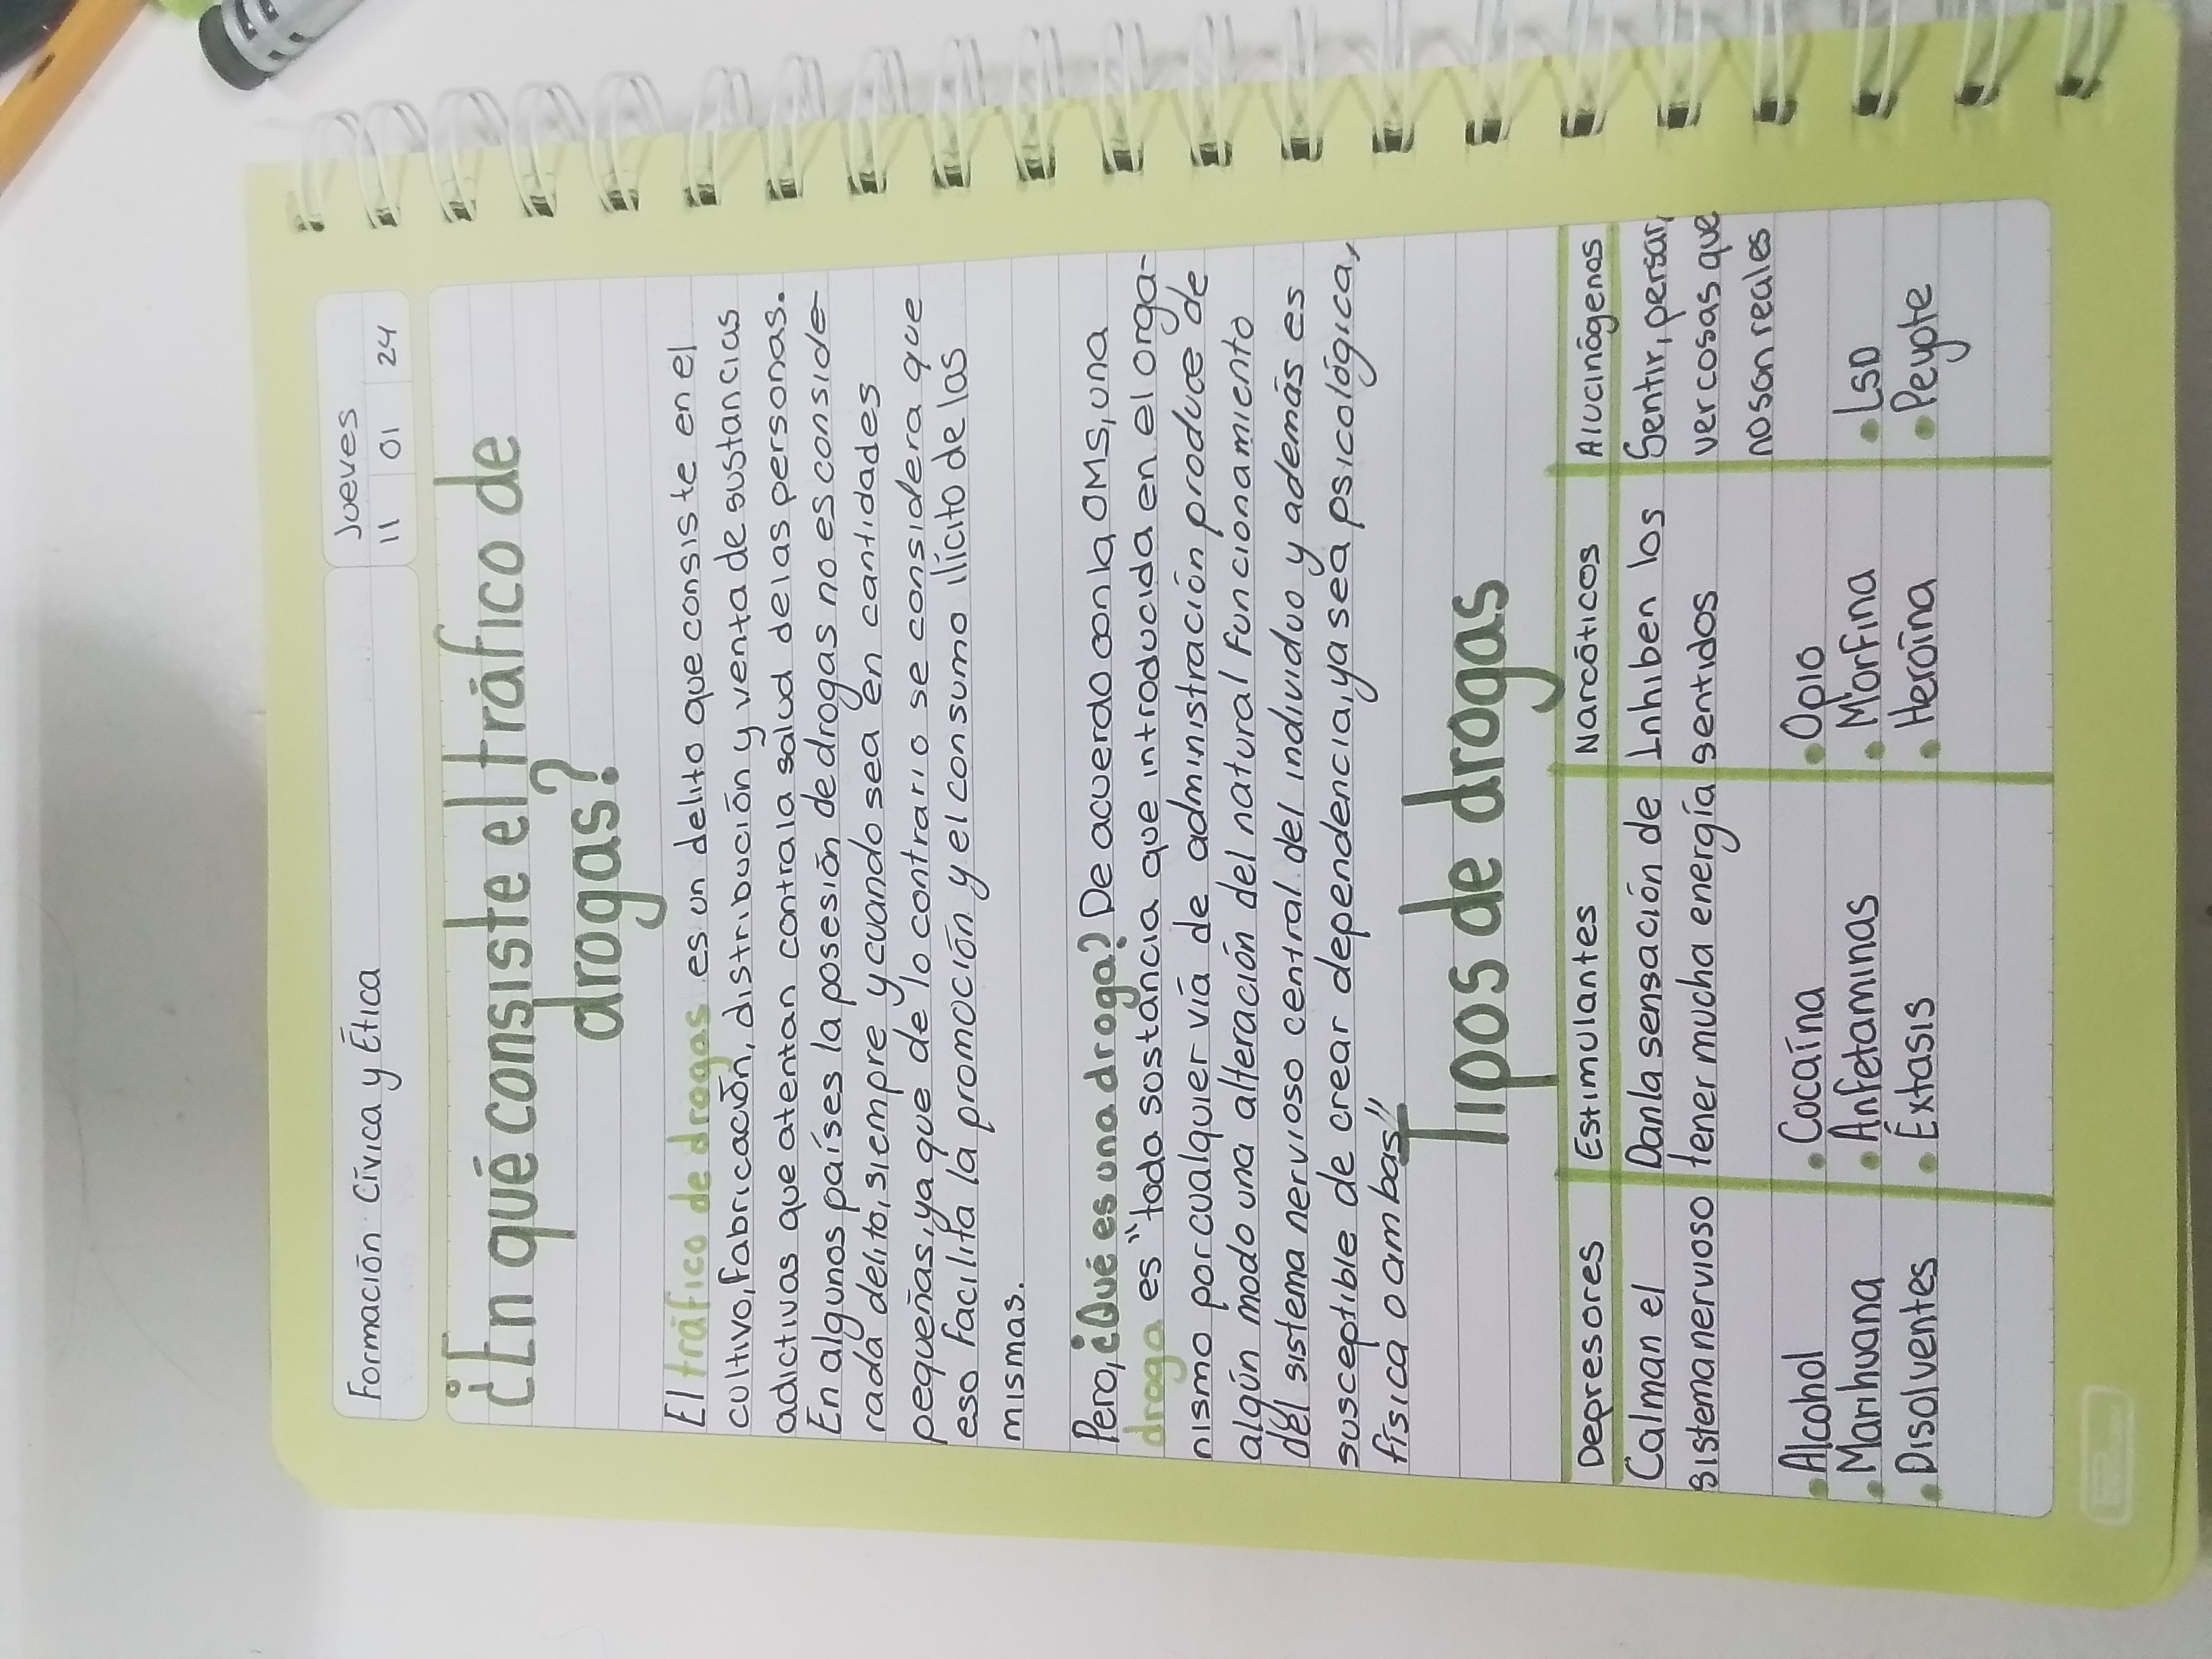 Formación Cívica y Ética
Jueves
11 01 24
¿En qué consiste el tráfico de
drogas?
El tráfico de drogas es un delito que consiste en el
cultivo, fabricación, distribución y venta de sustancias
adictivas que atentan contra la salud de las personas.
En algunos países la posesión de drogas no es conside-
rada delito, siempre y cuando sea en cantidades
pequeñas, ya que de lo contrario se considera que
eso facilita la promoción y el consumo ilícito de las
mismas.
Pero, ¿Qué es una droga? De acuerdo con la OMS, una
droga es "toda sustancia que introducida en el orga-
nismo por cualquier vía de administración produce de
algún modo una alteración del natural funcionamiento
del sistema nervioso central del individuo y además es
susceptible de crear dependencia, ya sea psicológica,
física o ambas"
Tipos de drogas
Depresores Estimulantes Narcóticos Alucinógenos
Calman el Dan la sensación de Inhiben los Sentir, pensar,
sistema nervioso tener mucha energía sentidos ver cosas que
no son reales
• Alcohol • Cocaína • Opio
• Marihuana • Anfetaminas • Morfina • LSD
• Disolventes • Éxtasis • Heroína • Peyote